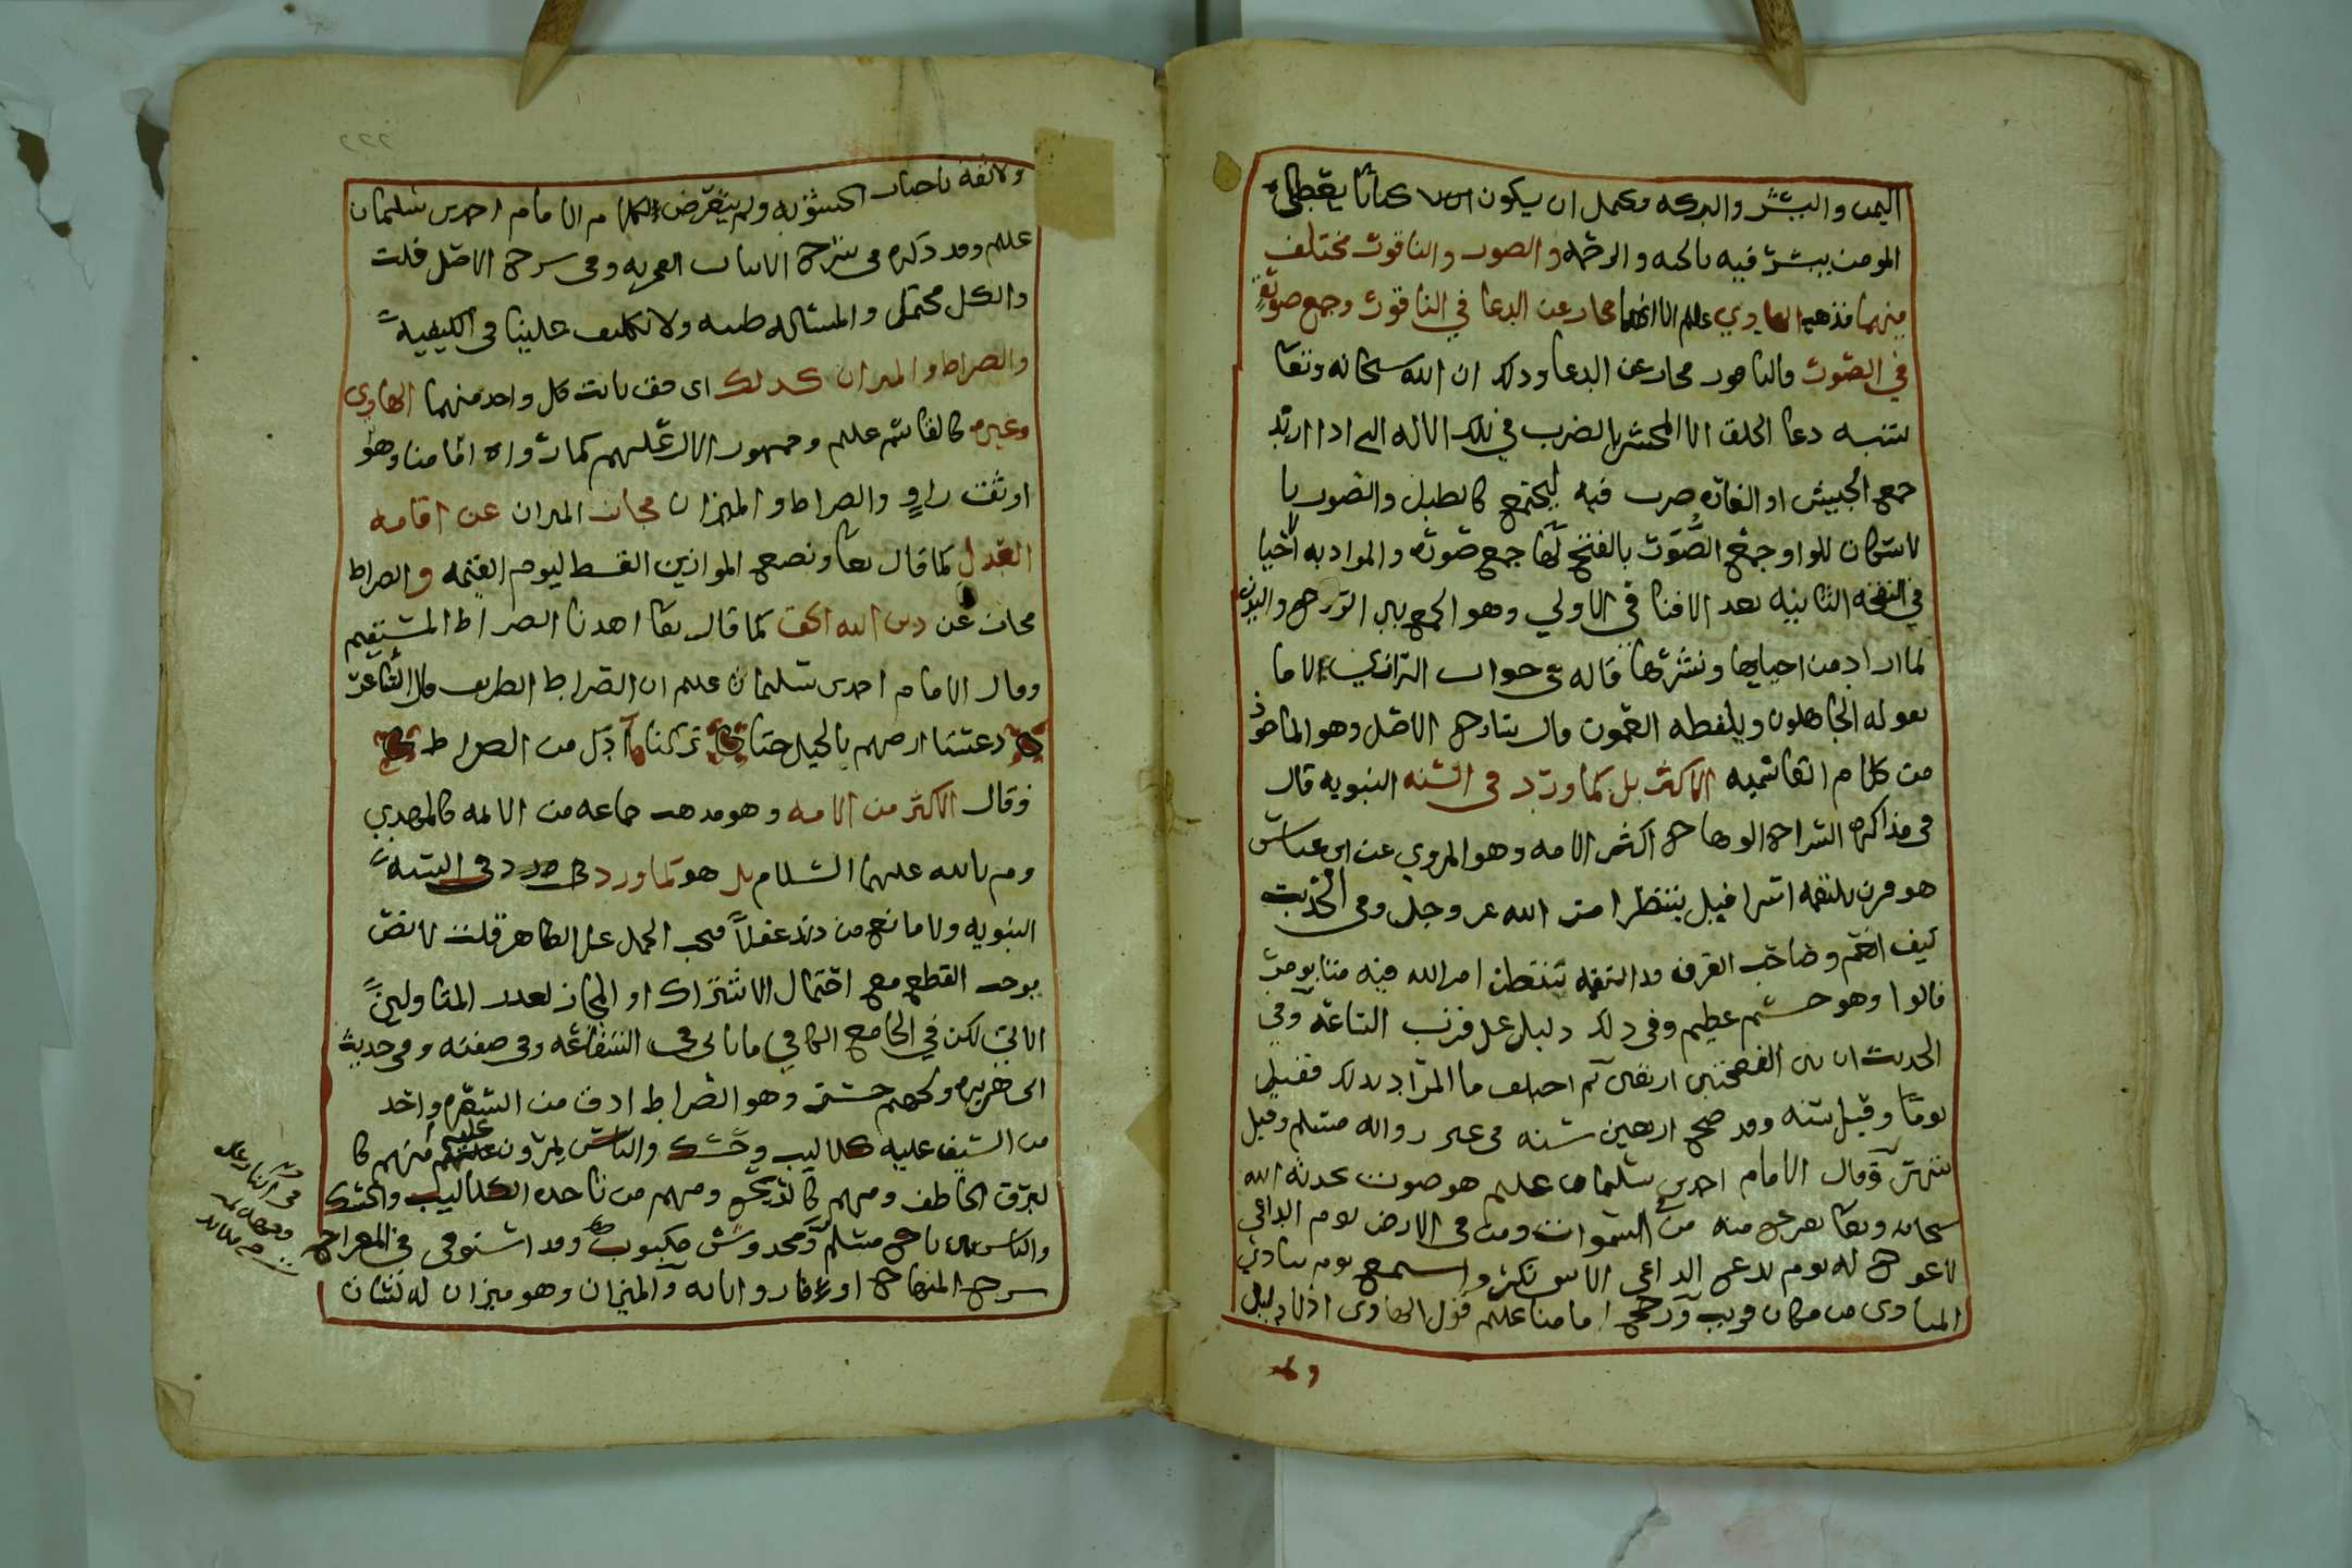 اليمن والبشر والبركه ويحمل ان يكون كتابا يعطى
المومن يبشر فيه بالجنه والرحمه والصور والناقور مختلف
فيهما فذهب الهادي علم الى انهما مجاز عن الدعا في الناقور وجمع صورة
في الصور والناقور مجاز عن الدعا وذلك ان الله سبحانه وتعا
شبه دعا الخلق الى المحشر بالضرب في تلك الاله التي اذا اريد
جمع الجيش او الغاره ضرب فيه ليجتمع كالطبل والصور با
لاسكان للواو جمع الصُّوَر بالفتح لها جمع صوره والمراد به احيا
في النفخه الثانيه بعد الافنا في الاولى وهو الجمع بين الروح والبدن
لما اراد من احيايها ونشرها قاله في جواب الرازي لا ما
يقوله الجاهلون ويلفظه العمون قال شارح الاصل وهو الماخوذ
من كلام القاسميه الاكثر بل كما ورد في السنه النبويه قال
في مذاكره السراج الوهاج اكثر الامه وهو المروي عن ابن عباس
هو قرن يلتقمه اسرافيل ينتظر امر الله عز وجل وفي الحديث
كيف انعم وصاحب القرن قد التقمه ينتظر امر الله فيه متا يومر
قالوا وهو جسم عظيم وفي ذلك دليل على قرب الساعه وفي
الحديث ان بين النفختين اربعين ثم اختلف ما المراد بذلك فقيل
يوما وقيل سنه وقد صح اربعين سنه في رواله مسلم وقيل
شهر وقال الامام احمد بن سليمان علم هو صوت يحدثه الله
سبحانه وتعا يفزع منه من في السموات ومن في الارض يوم الداعي
لا عوج له يوم يدع الداعي الى شي نكر واستمع يوم ينادي
المنادي من مكان قريب ورجح امامنا علم قول الهادي اذ لا دليل
ولا
٢٢٢
ولا ثقه باحبار الحشويه ولم يتعرض الامام احمد بن سليمان
علم وقد ذكره في شرح الابيات الفخريه وفي شرح الاصل قلت
والكل محتمل والمساله ظنيه ولا تكليف علينا في الكيفيه
والصراط والميزان كذلك اي حق ثابت كل واحد منهما الهادي
وغيره كالقاسم علم وجمهور الال عليهم كما رواه امامنا وهو
اوثق راوٍ والصراط والميزان مجاز الميزان عن اقامه
العدل كما قال تعا ونضع الموازين القسط ليوم القيمه والصراط
مجاز عن دين الله الحق كما قال تعا اهدنا الصراط المستقيم
وقال الامام احمد بن سليمان علم ان الصراط الطريق قال الشاعر
دعسنا ارضهم بالخيل حتا تركنا اذل من الصراط
وقال الاكثر من الامه وهو مذهب جماعه من الايمه كالمهدي
وم بالله عليهما السلام بل هو كما ورد في السنه
النبويه ولا مانع من ذلك عقلاً فيجب الحمل على الظاهر قلت لا نص
يوجب القطع مع احتمال الاشتراك او المجاز لعدد المتاولين
الاتي لكن في الجامع الكافي ما ياتي في الشفاعه وفي صفته وفي حديث
ابي هريره ولجهنم جسر وهو الصراط ادق من الشعره واحد
من السيف عليه كلاليب وحسك والناس يمرون عليه منهم كا
لبرق الخاطف ومنهم كالريح ومنهم من تاخذه الكلاليب والحسك
والناس ناج مسلم ومخدوش مكبوب وقد استوفى في المعراج
شرح المنهاج والميزان وهو ميزان له لسان